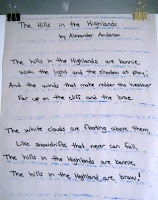 The Hills in the Highlands
by Alexander Anderson
The hills in the Highlands are bonnie,
With the light and the shadow at play;
And the winds that make redder the heather
Far up on the cliff and the brae.
The white clouds are floating above them,
Like snowdrifts that never can fall,
The hills in the Highlands are bonnie,
The Hills in the Highland are braw!